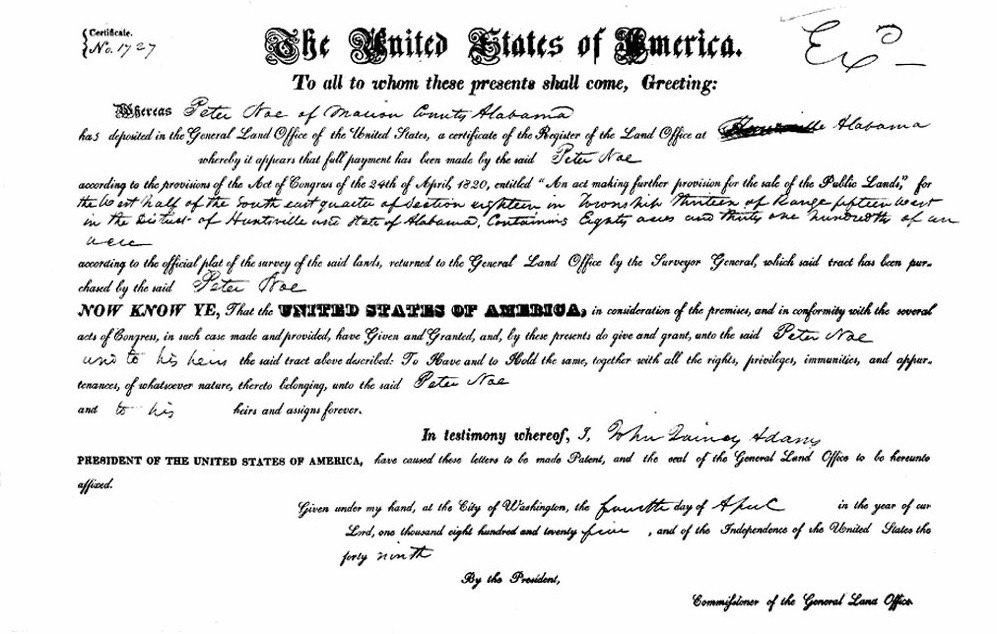 Certificate.
No. 1727
The United States of America.
Exd
To all to whom these presents shall come, Greeting:
Whereas Peter Noe of Marion County Alabama
has deposited in the General Land Office of the United States, a certificate of the Register of the Land Office at Alabama
whereby it appears that full payment has been made by the said Peter Noe
according to the provisions of the Act of Congress of the 24th of April, 1820, entitled "An act making further provision for the sale of the Public Lands," for
the West half of the South east quarter of Section eighteen in Township thirteen of Range fifteen West
in the District of Huntsville and State of Alabama, Containing Eighty acres and thirty one hundredths of an
acre
according to the official plat of the survey of the said lands, returned to the General Land Office by the Surveyor General, which said tract has been pur-
chased by the said Peter Noe
NOW KNOW YE, That the UNITED STATES OF AMERICA, in consideration of the premises, and in conformity with the several
acts of Congress, in such case made and provided, have Given and Granted, and, by these presents do give and grant, unto the said Peter Noe
and to his heirs the said tract above described: To Have and to Hold the same, together with all the rights, privileges, immunities, and appur-
tenances, of whatsoever nature, thereto belonging, unto the said Peter Noe
and to his heirs and assigns forever.
In testimony whereof, I, John Quincy Adams
PRESIDENT OF THE UNITED STATES OF AMERICA, have caused these letters to be made Patent, and the seal of the General Land Office to be hereunto
affixed.
Given under my hand, at the City of Washington, the fourth day of April in the year of our
Lord, one thousand eight hundred and twenty five, and of the Independence of the United States the
forty ninth
By the President,
Commissioner of the General Land Office.